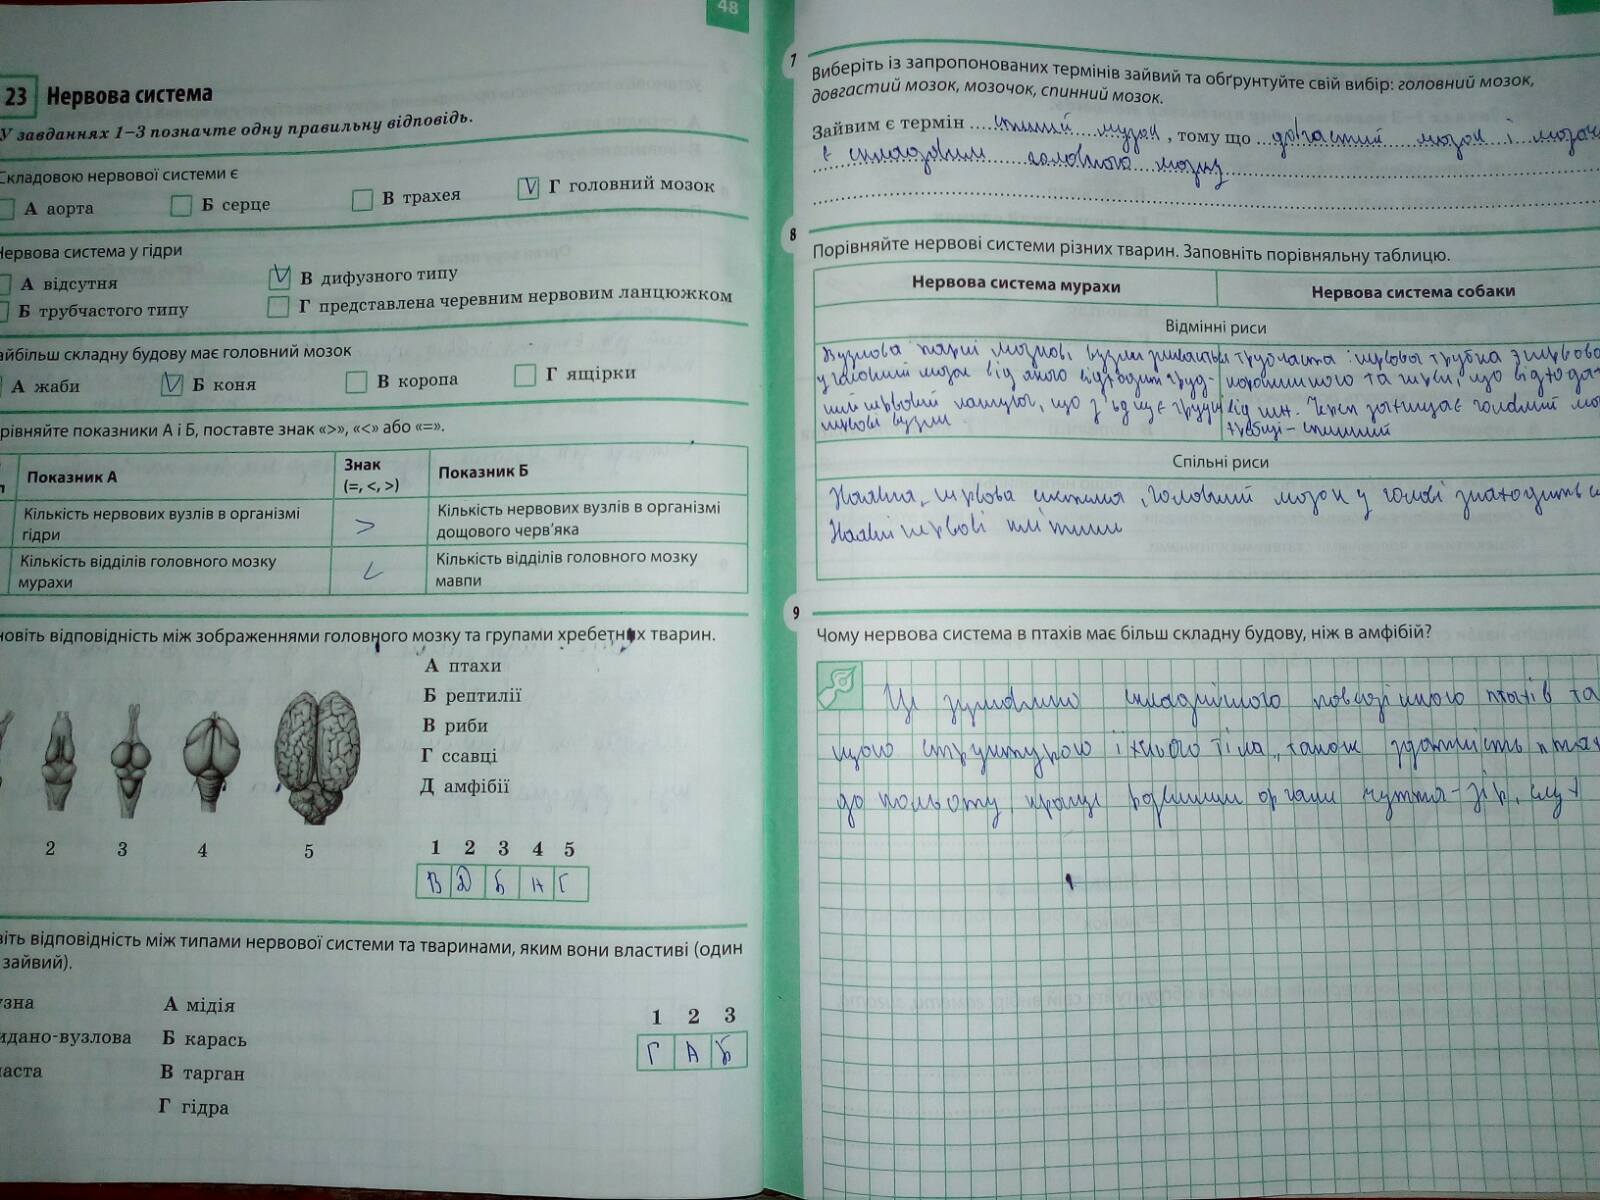 48
23 Нервова система
У завданнях 1–3 позначте одну правильну відповідь.
Складовою нервової системи є
А аорта Б серце В трахея V Г головний мозок
Нервова система у гідри
А відсутня V В дифузного типу
Б трубчастого типу Г представлена черевним нервовим ланцюжком
айбільш складну будову має головний мозок
А жаби V Б коня В коропа Г ящірки
рівняйте показники А і Б, поставте знак «>», «<» або «=».
п Показник А Знак (=, <, >) Показник Б
Кількість нервових вузлів в організмі гідри > Кількість нервових вузлів в організмі дощового черв'яка
Кількість відділів головного мозку мурахи < Кількість відділів головного мозку мавпи
новіть відповідність між зображеннями головного мозку та групами хребетних тварин.
А птахи
Б рептилії
В риби
Г ссавці
Д амфібії
2 3 4 5
1 2 3 4 5
В Д Б А Г
віть відповідність між типами нервової системи та тваринами, яким вони властиві (один
зайвий).
узна А мідія
идано-вузлова Б карась
часта В тарган
Г гідра
1 2 3
Г А Б
7
Виберіть із запропонованих термінів зайвий та обґрунтуйте свій вибір: головний мозок,
довгастий мозок, мозочок, спинний мозок.
Зайвим є термін мозок, тому що довгастий мозок і мозоч
є складовим головного мозку
8
Порівняйте нервові системи різних тварин. Заповніть порівняльну таблицю.
Нервова система мурахи Нервова система собаки
Відмінні риси
Вузлова парні мозкові вузли трубчаста: нервова трубка з нервово
у головний мозок від якого відходить груд- та нерви, що відходя
ний нервовий ланцюг, що з'єднує грудні від них. Череп захищає головний мо
нервові вузли хребці – спинний
Спільні риси
Наявна нервова система, головний мозок у голові знаходиться
Наявні нервові клітини
9
Чому нервова система в птахів має більш складну будову, ніж в амфібій?
Це зумовлено складнішою птахів та
структурою їхнього тіла, також здатність птах
до польоту, краще розвинені органи чуття – зір, слух